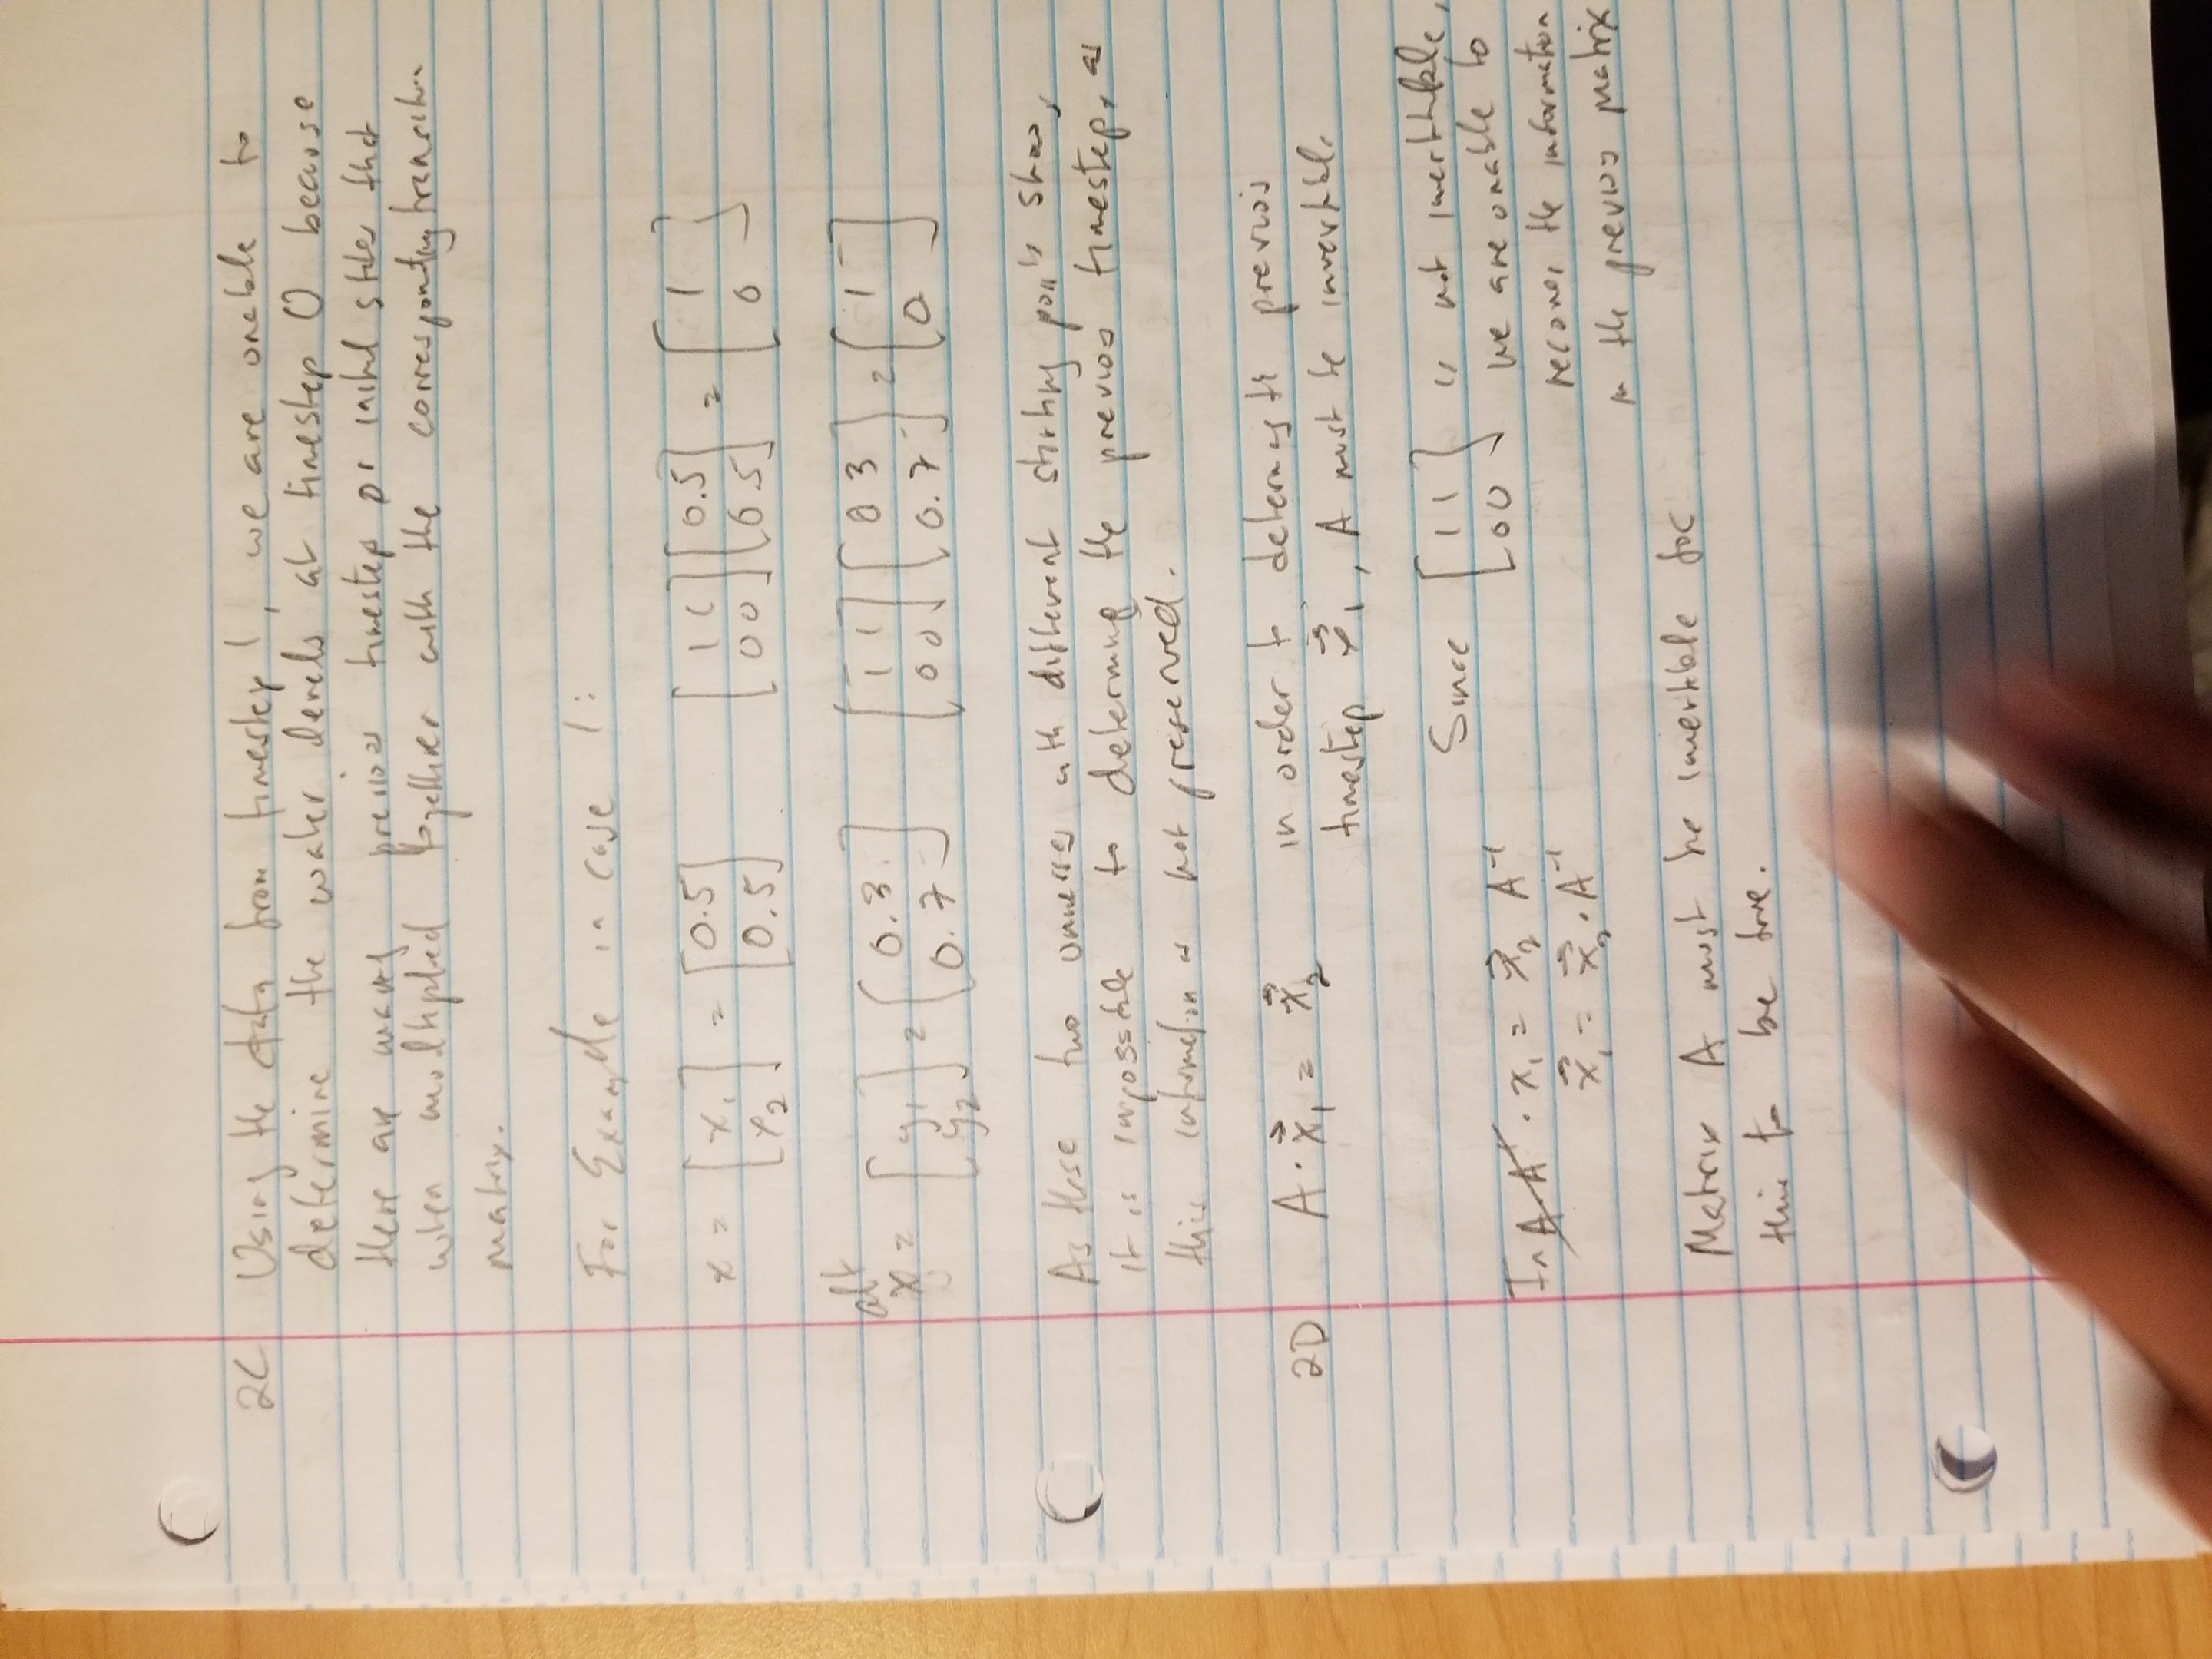 2C Using the data from timestep 1, we are unable to
determine the water levels at timestep 0 because
there are many previous timestep or initial states that
when multiplied together with the corresponding transition
matrix.
For Example in case 1:
x = [x₁ x₂] = [0.5 0.5] [1 1 0 0] [0.5 0.5] = [1 0]
alt
x = [y₁ y₂] = [0.3 0.7] [1 1 0 0] [0.3 0.7] = [1 0]
As these two universes with different starting points show,
it is impossible to determing the previous timestep, as
this information is not preserved.
2D A · x⃗₁ = x⃗₂ in order to determing the previous
timestep x⃗₁, A must be invertible
Since [1 1 0 0] is not invertible,
we are unable to
recover the information
in the previous matrix
In A A⁻¹ · x₁ = x⃗₂ A⁻¹
x⃗₁ = x⃗₂ · A⁻¹
Matrix A must be invertible for
this to be true.